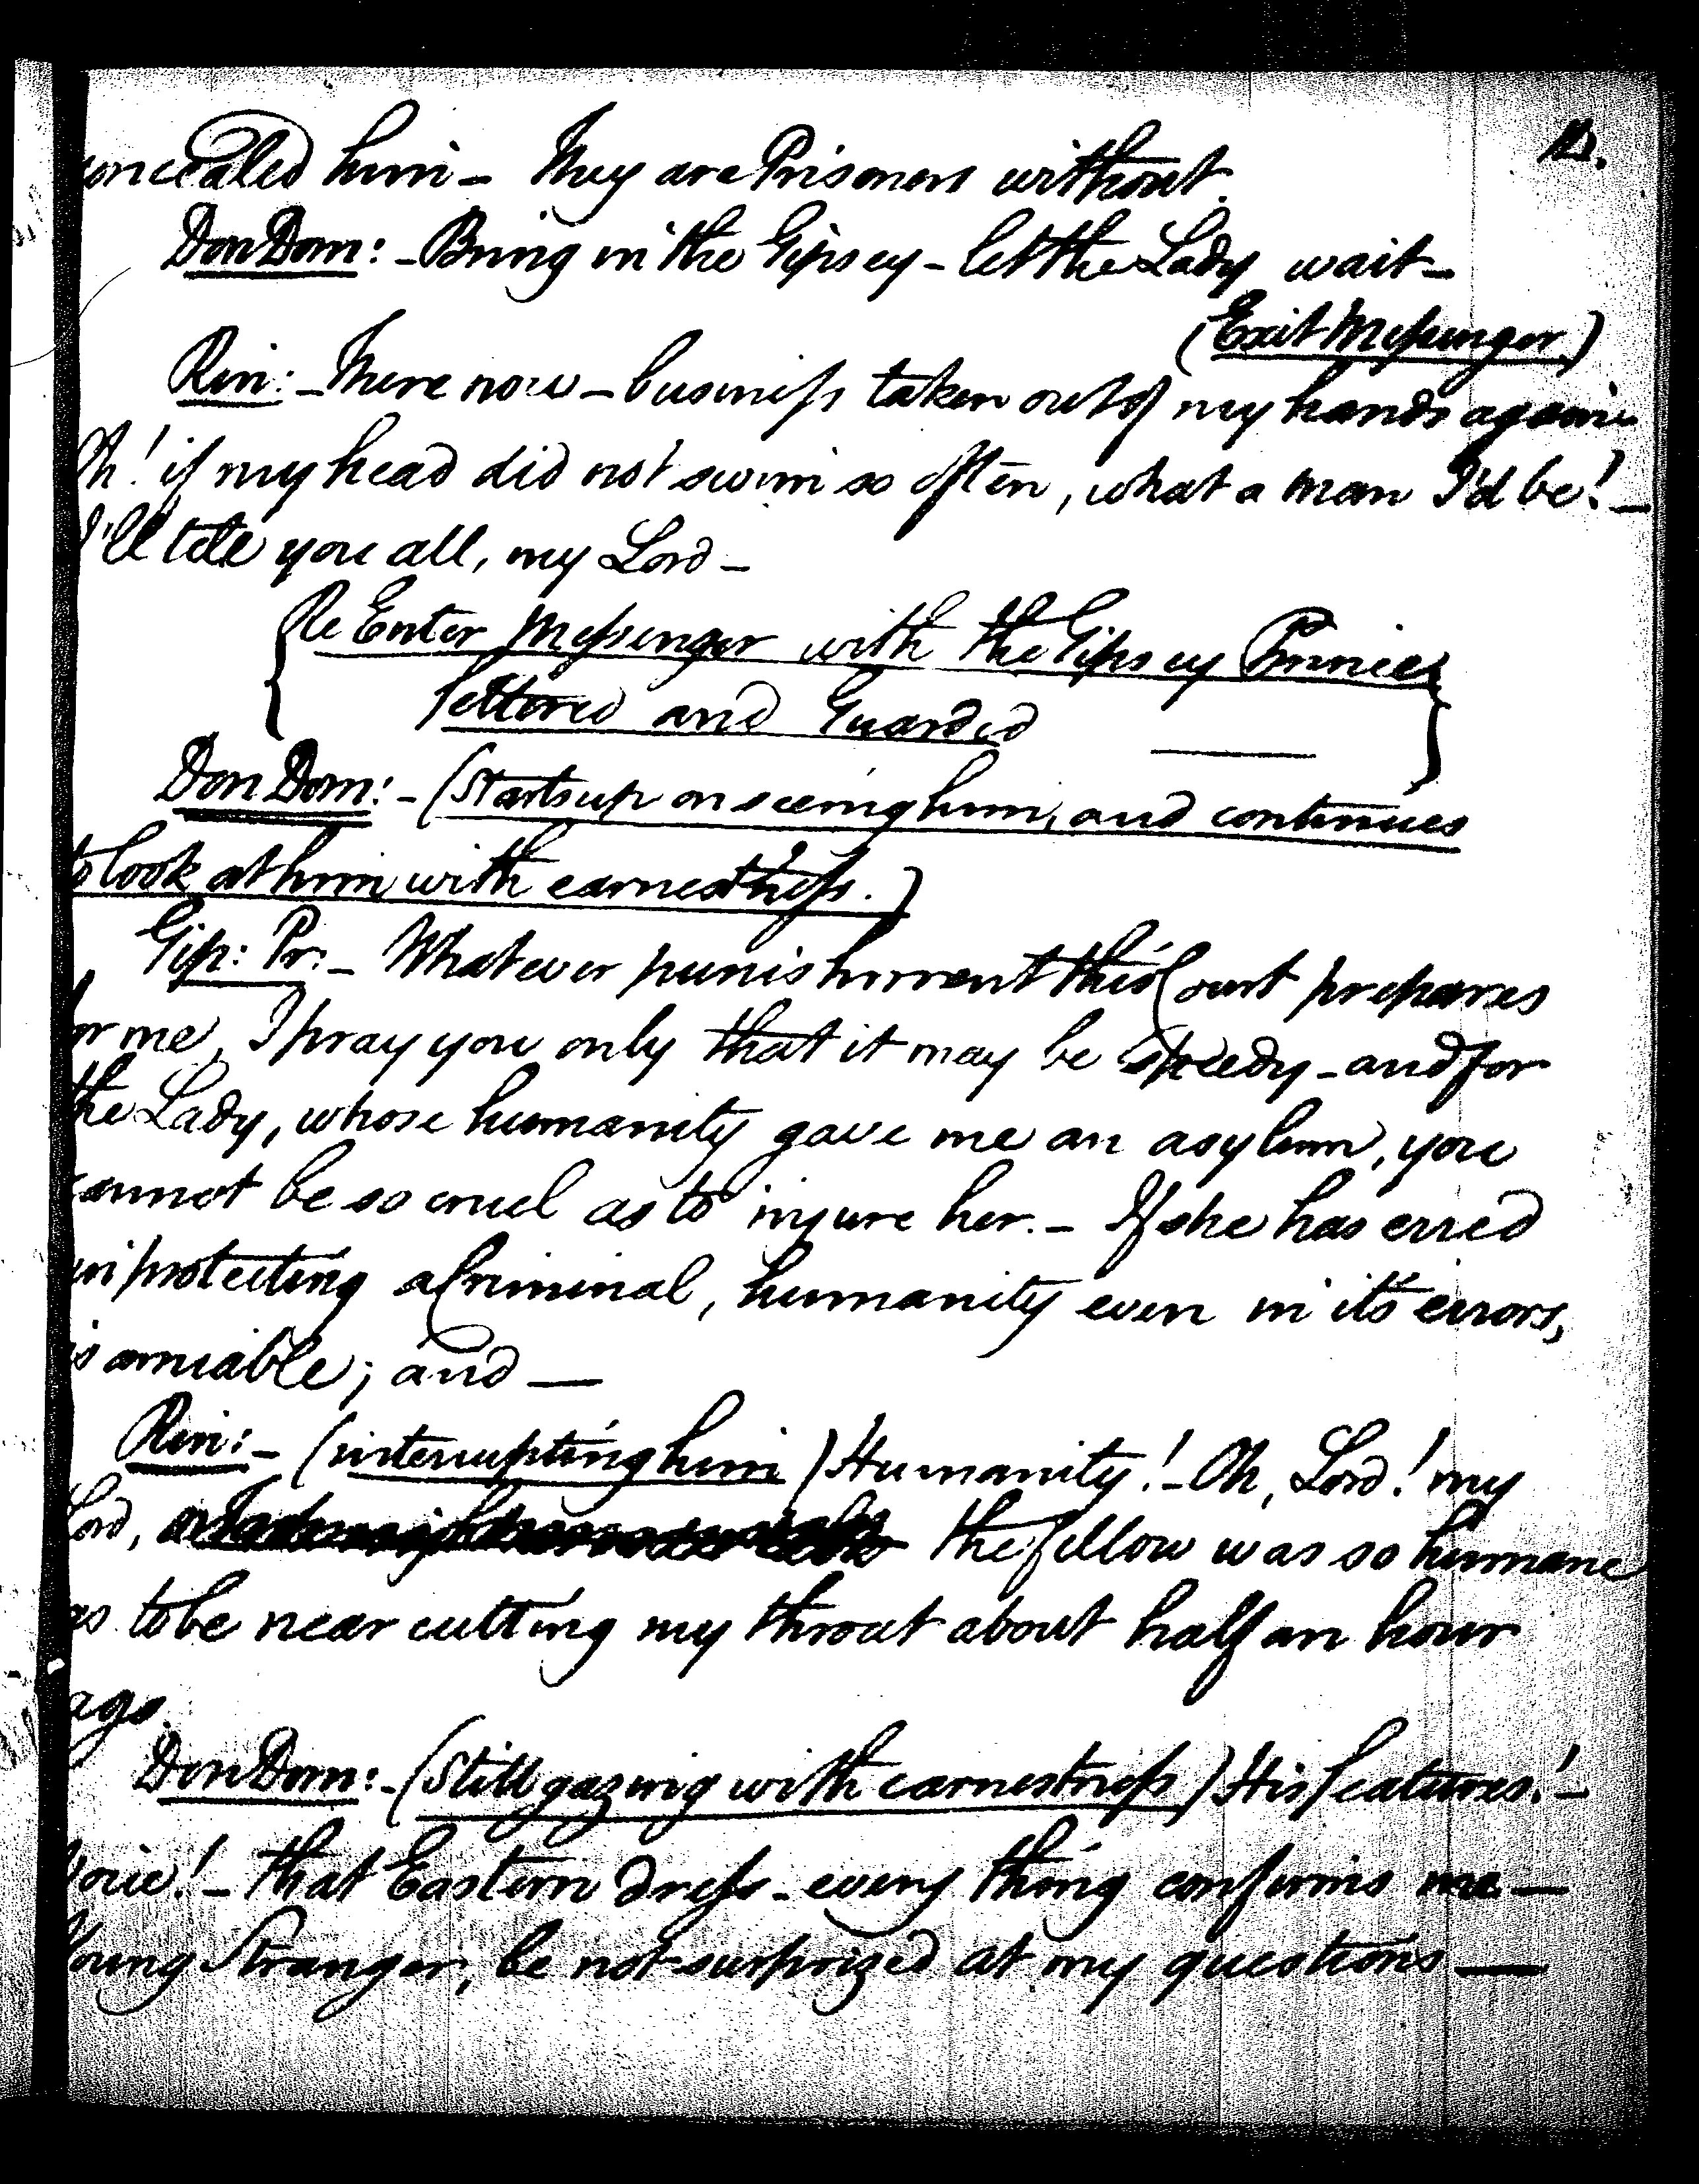 12.
concealed him – They are Prisoners without.
Don Dom: – Bring in the Gipsey – let the Lady wait –
(Exit Meſsenger)
Rin: – There now – buisniſs taken out of my hands again
Oh! if my head did not swim so often, what a man I'd be! –
I'll tell you all, my Lord –
{Re Enter Meſsenger with the Gipsey Prince}
fettered and Guarded
Don Dom: – (Starts up on seeing him, and continues
to look at him with earnestneſs.)
Gip: Pr: – Whatever punishment this Court prepares
for me, I pray you only that it may be speedy – and for
the Lady, whose humanity gave me an asylum, you
cannot be so cruel as to injure her. – If she has erred
in protecting a Criminal, humanity even in it's errors,
is amiable; and —
Rin: – (interrupting him) Humanity! – Oh, Lord! my
Lord, the fellow was so humane
as to be near cutting my throat about half an hour
ago.
Don Dom: – (Still gazing with earnestneſs) His features! –
Voice! – that Eastern dreſs – every thing confirms me —
Young Stranger, be not surprized at my questions —